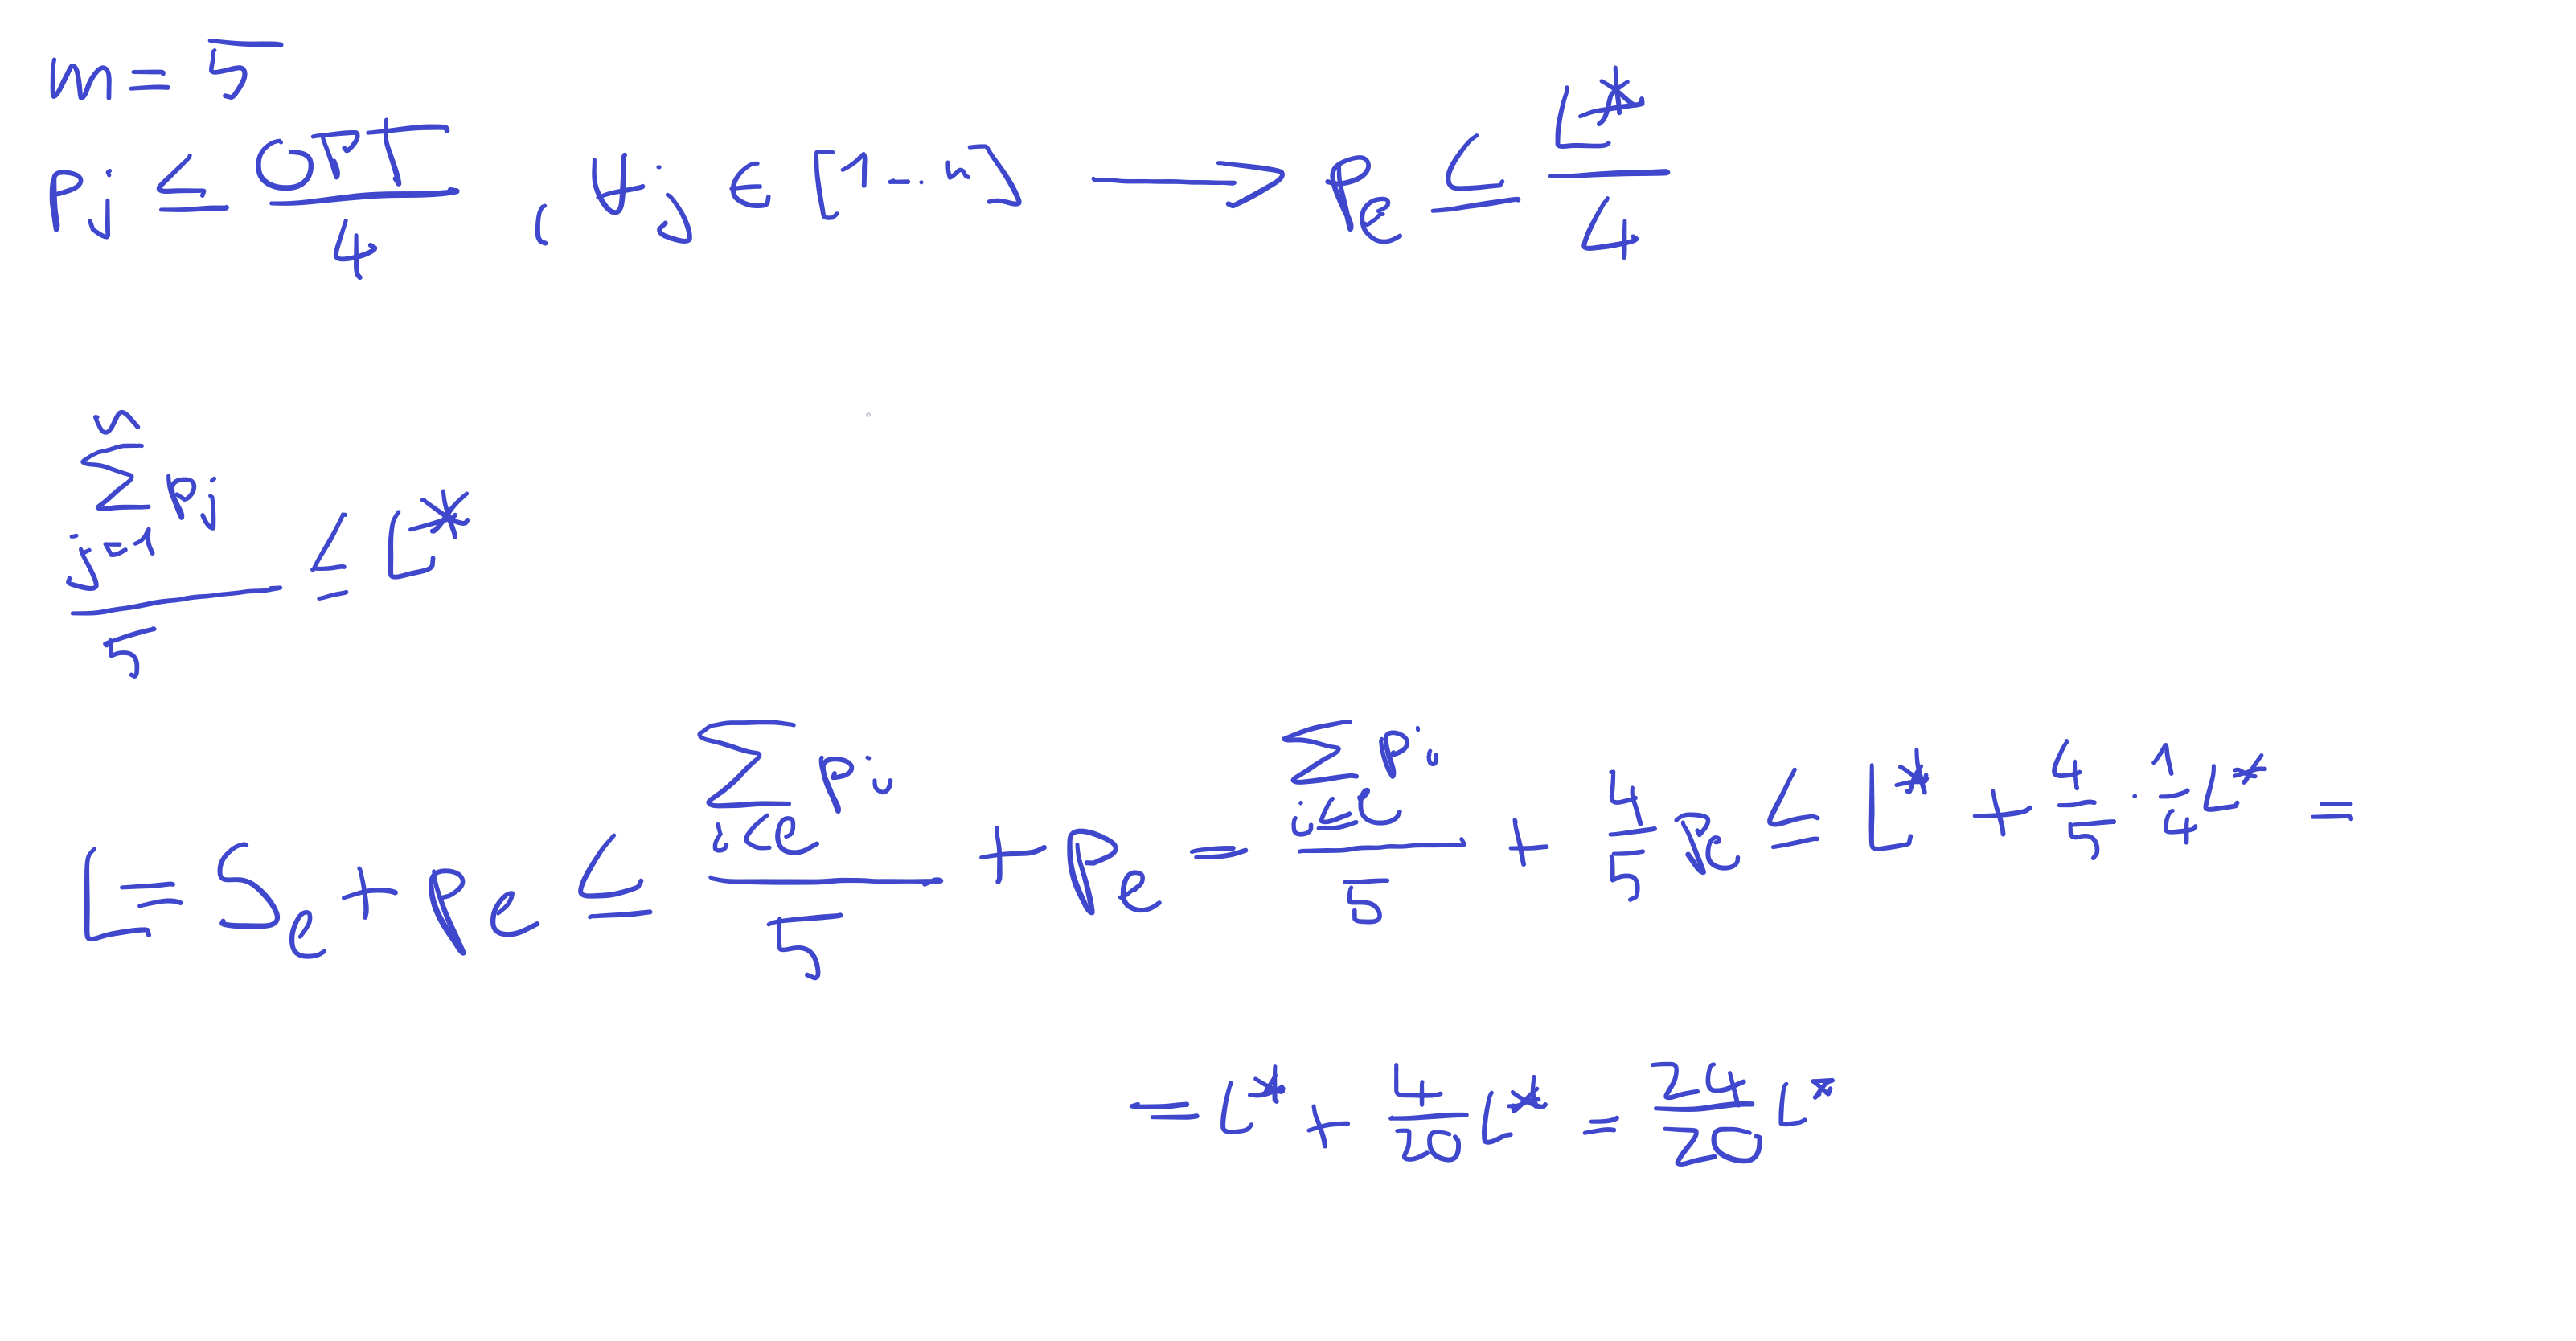 m = 5
pj ≤ OPT/4 , ∀j ∈ [1...n] → pe ≤ L*/4
∑_{j=1}^{n} pj / 5 ≤ L*
L = Se + pe ≤ ∑_{i<e} pi / 5 + pe = ∑_{i≤e} pi / 5 + 4/5 pe ≤ L* + 4/5 · 1/4 L* =
= L* + 4/20 L* = 24/20 L*